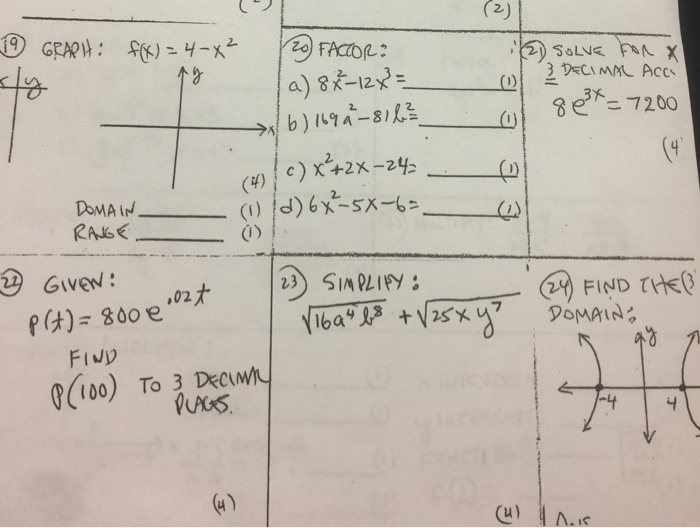 (2)
(2)
19) GRAPH: f(x) = 4 - x²
x y
y
x
(4)
DOMAIN ________ (1)
RANGE ________ (1)
20) FACTOR:
a) 8x² - 12x³ = ________ (1)
b) 169a² - 81b² = ________ (1)
c) x² + 2x - 24 = ________ (1)
d) 6x² - 5x - 6 = ________ (1)
21) SOLVE FOR X
3 DECIMAL ACC
8e^3x = 7200
(4
22) GIVEN:
P(t) = 800e^.02t
FIND
P(100) TO 3 DECIMAL
PLACES.
(4)
23) SIMPLIFY:
√16a⁴b⁸ + √25xy⁷
(4)
24) FIND THE
DOMAIN:
y
-4 4